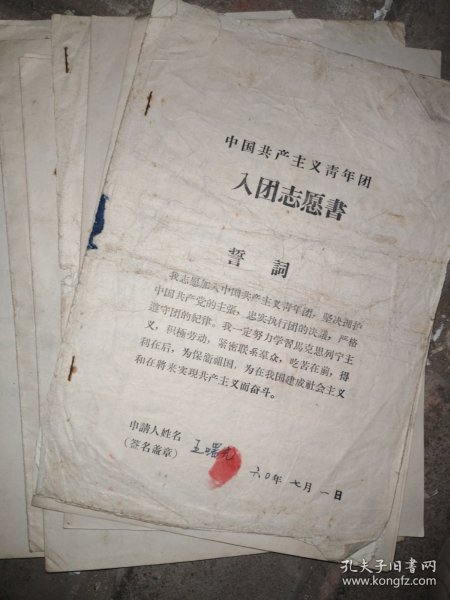 中国共产主义青年团
入团志愿書
誓 詞
我志愿加入中国共产主义青年团，坚决拥护
中国共产党的主張，忠实执行团的决議，严格
遵守团的紀律。我一定努力学習馬克思列宁主
义，积极劳动，紧密联系羣众，吃苦在前，得
利在后，为保衞祖国，为在我国建成社会主义
和在将来实现共产主义而奋斗。
申請人姓名
(签名盖章) 王曙光
六〇年七月一日
孔夫子旧書网
www.kongfz.com